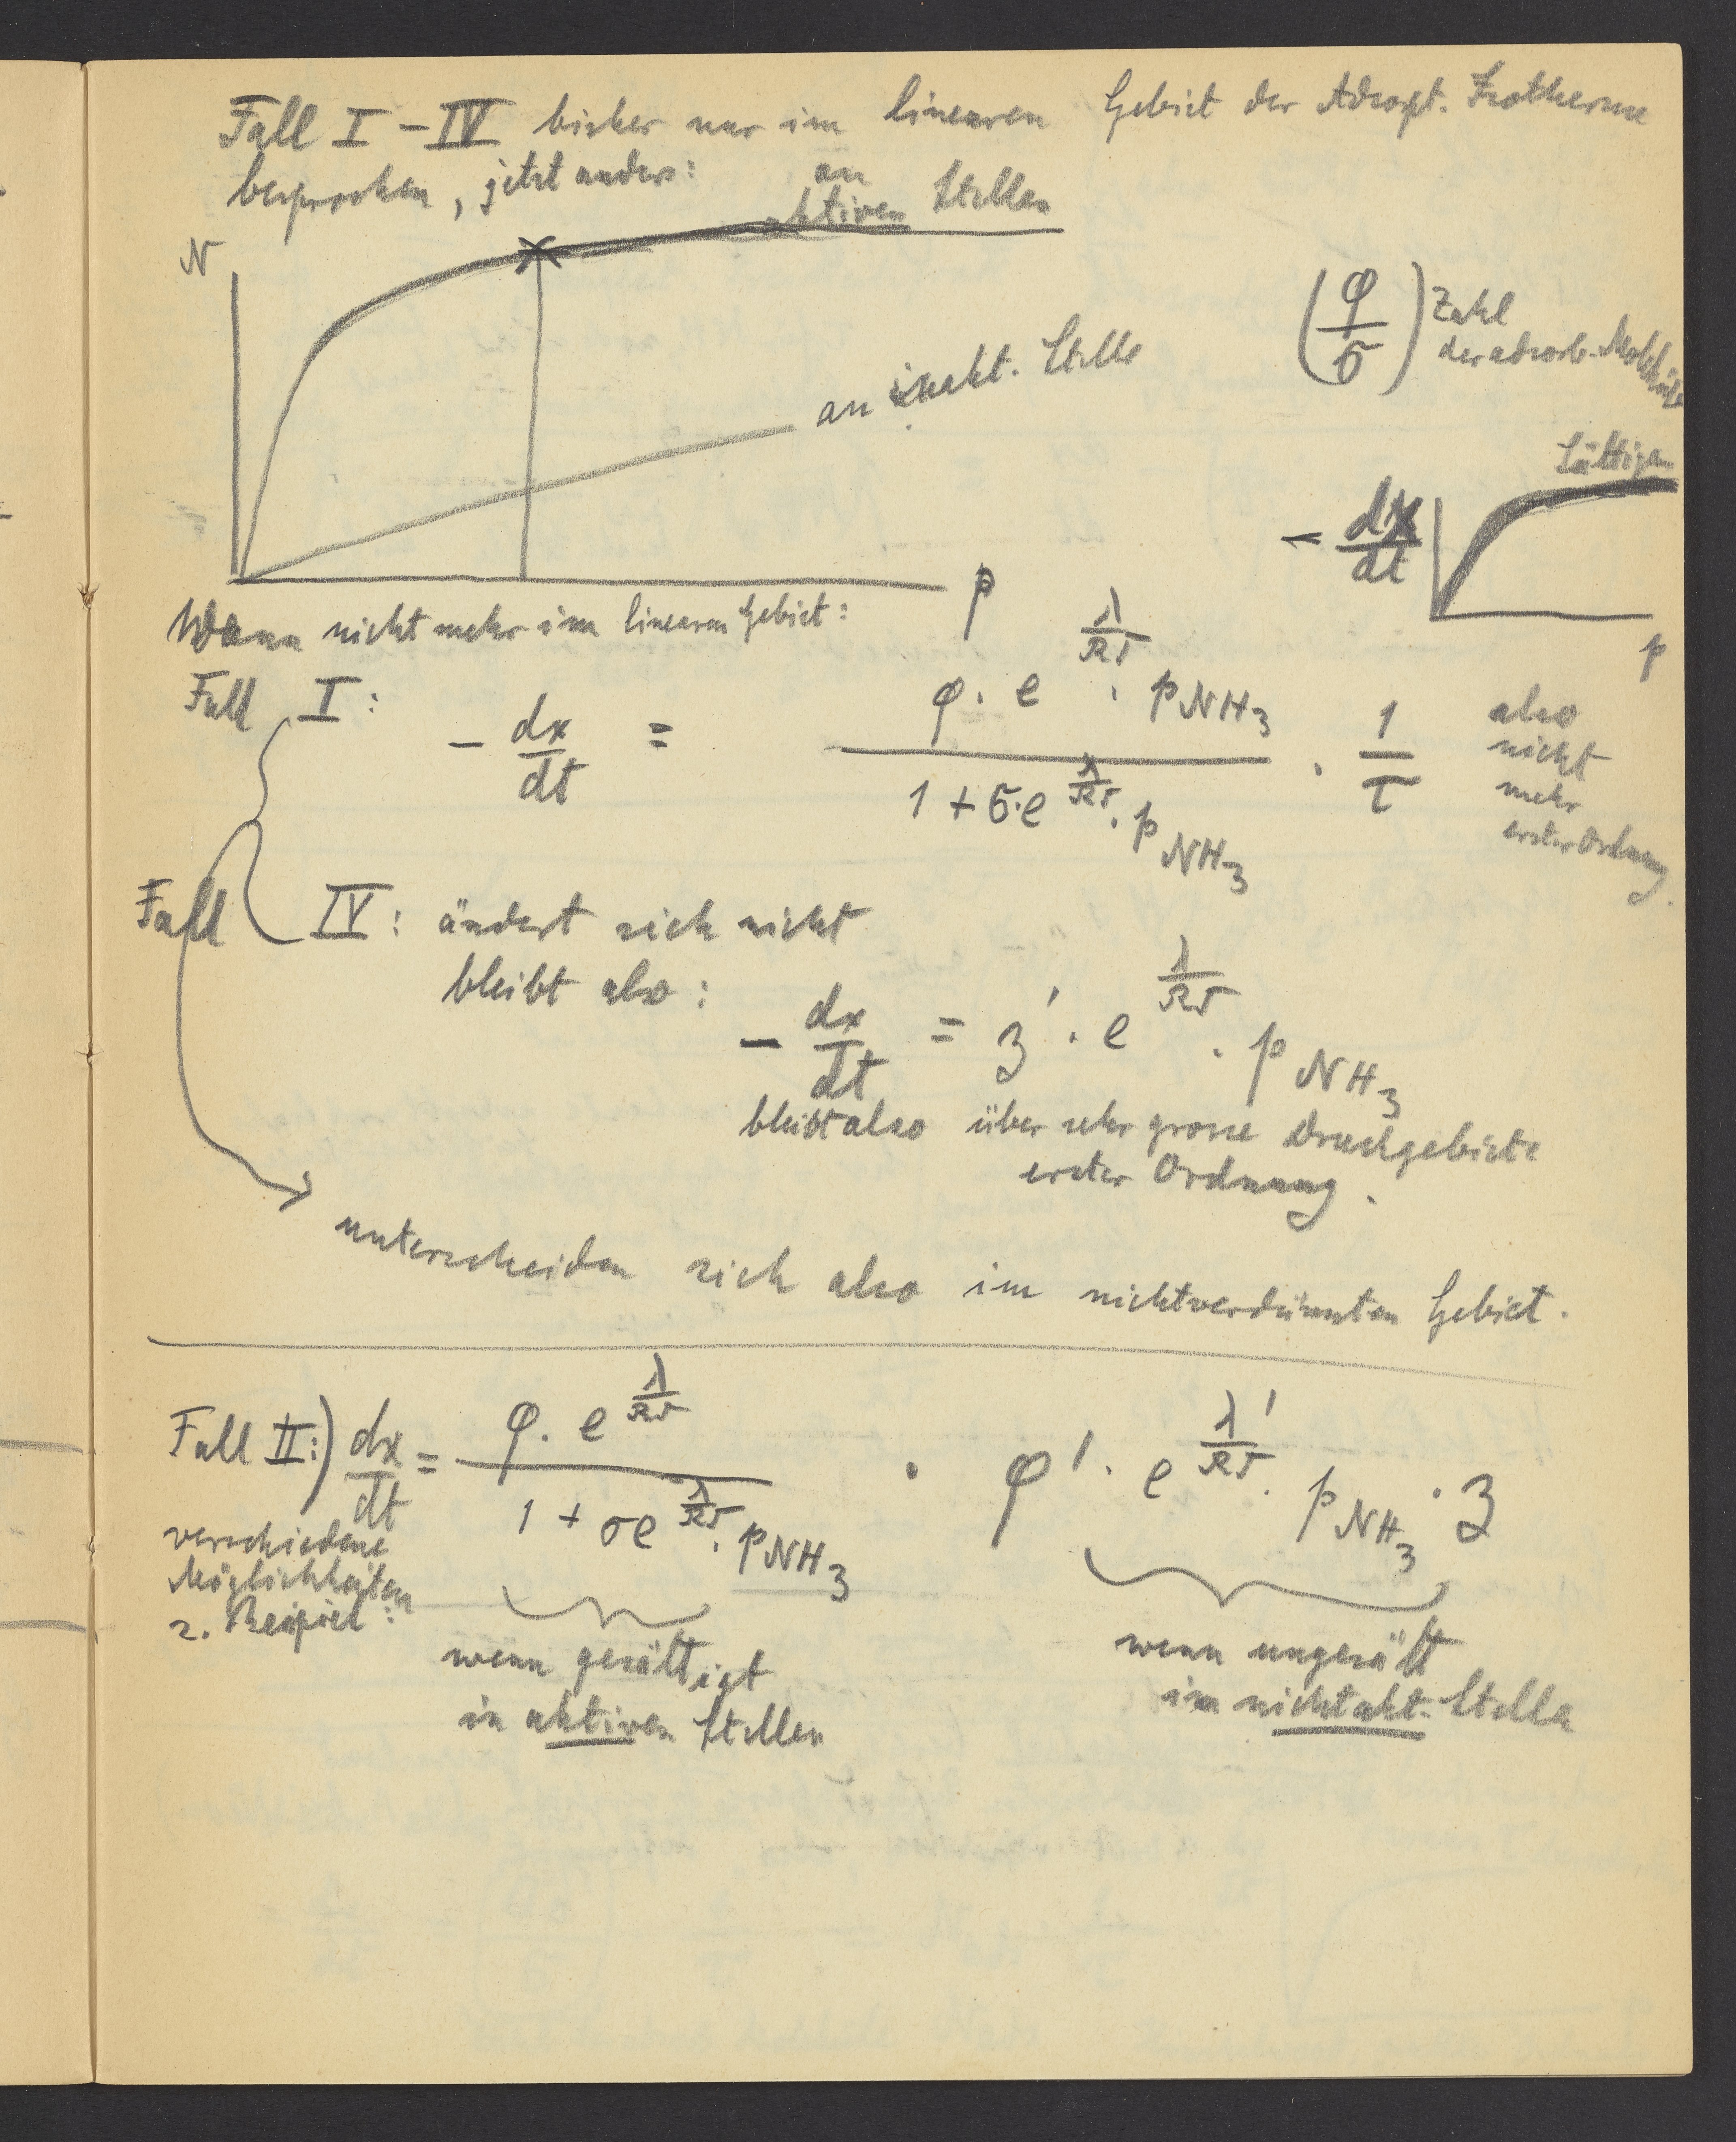 Fall I – IV bisher nur im linearen Gebiet der Adsorpt. Isotherme
besprochen, jetzt anders:
an
aktiven Stellen
N
an inakt. Stelle
p
(φ/σ) Zahl
der adsorb. Moleküle
Sättigen
- dx/dt
p
Wenn nicht mehr im linearen Gebiet:
Fall I: - dx/dt = (φ · e^(λ/RT) · p NH3) / (1 + σ·e^(λ/RT) · p NH3) · 1/τ
also
nicht
mehr
erster Ordnung.
Fall IV: ändert sich nicht
bleibt also:
- dx/dt = z' · e^(λ/RT) · p NH3
bleibt also über sehr grosse Druckgebiete
erster Ordnung.
unterscheiden sich also im nichtverdünnten Gebiet.
Fall II:) dx/dt = (φ · e^(λ/RT)) / (1 + σe^(λ/RT) · p NH3) · φ' · e^(λ'/RT) · p NH3 · z
verschiedene
Möglichkeiten
z. Beispiel:
wenn gesättigt
in aktiven Stellen
wenn ungesätt
im nichtakt. Stellen